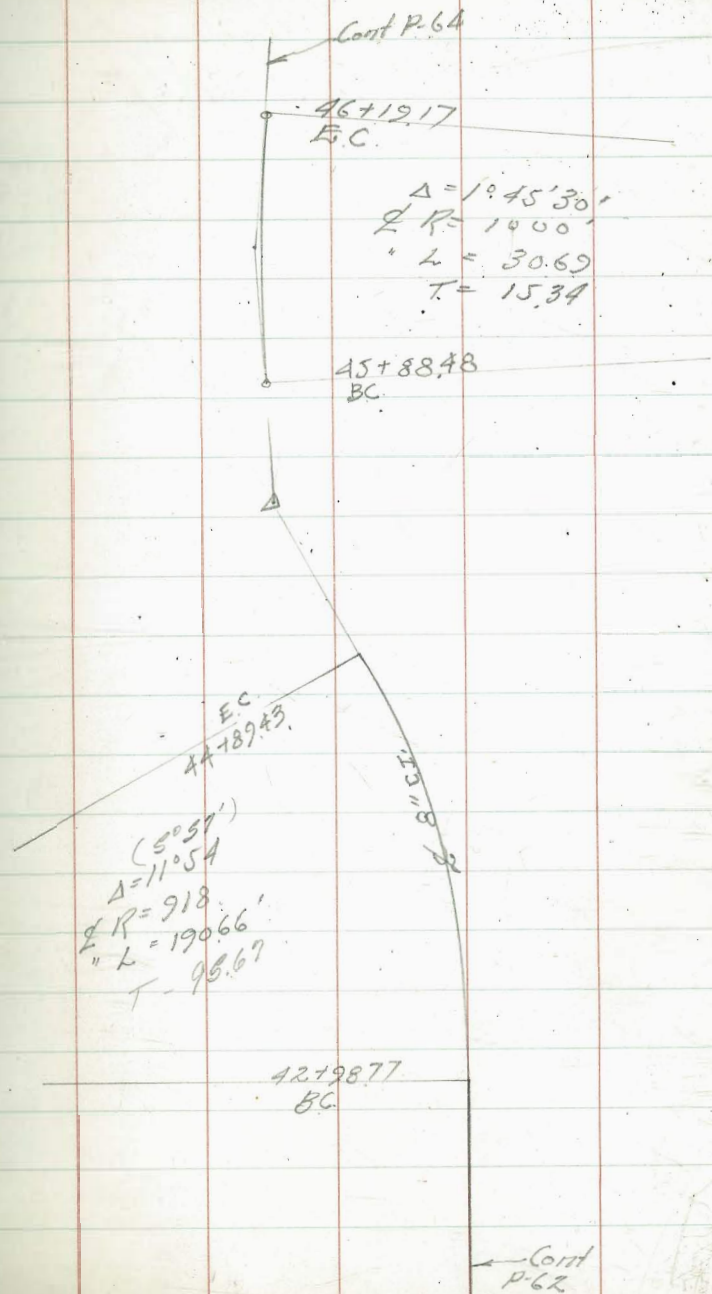 Cont P-64
46+19.17
E.C.
Δ = 1°45'30"
℄ R = 1000'
" L = 30.69
T = 15.34
45+88.48
BC
E.C.
44+89.43
℄ 8" C.I.
(5°57')
Δ = 11°54
℄ R = 918
" L = 190.66'
T - 95.67
42+98.77
BC
Cont
P-62